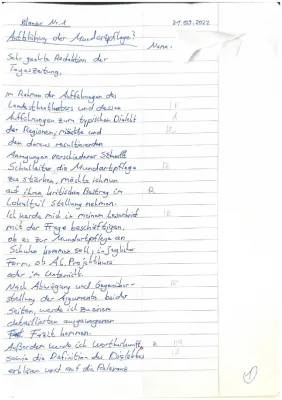 Klausur Nr. 1 21.09.2022
Aufblühung der Mundartpflege?
Name:
Sehr geehrte Redaktion der
Tageszeitung,
im Rahmen der Aufführungen des
Landestheaters und dessen
Aufführungen zum typischen Dialekt
der Regionen, möchte und
den daraus resultierenden
Anregungen verschiedener
Schulleiter die Mundartpflege
zu stärken, möchte ich nun
auf ihren kritischen Beitrag im
Lokalteil Stellung nehmen.
Ich werde mich in meinem Leserbrief
mit der Frage beschäftigen,
ob es zur Mundartpflege an
Schulen kommen soll, in jeglicher
Form, ob AG, Projektkurs
oder im Unterricht.
Nach Abwägung und Gegenüber-
stellung der Argumente beider
Seiten, werde ich zu einem
detaillierten ausgewogenen
Fazit kommen.
Außerdem werde ich
sowie die Definition des Dialektes
erklären und auf die Relevanz
1